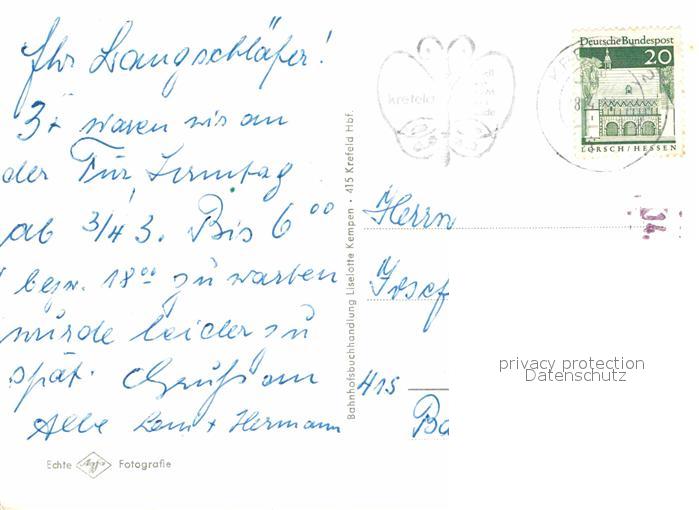 Ihr Langschläfer!
3x waren wir an
der Tür, Sonntag
ab 3/4 3. Bis 6 00
bezw. 18 00 zu warten
würde leider zu
spät. Gruß an
Alle Leni + Hermann
Echte Agfa Fotografie
Bahnhofsbuchhandlung Liselotte Kempen • 415 Krefeld Hbf.
krefeld
Deutsche Bundespost
20
LORSCH/HESSEN
34.
Herrn
Josef
415
privacy protection
Datenschutz